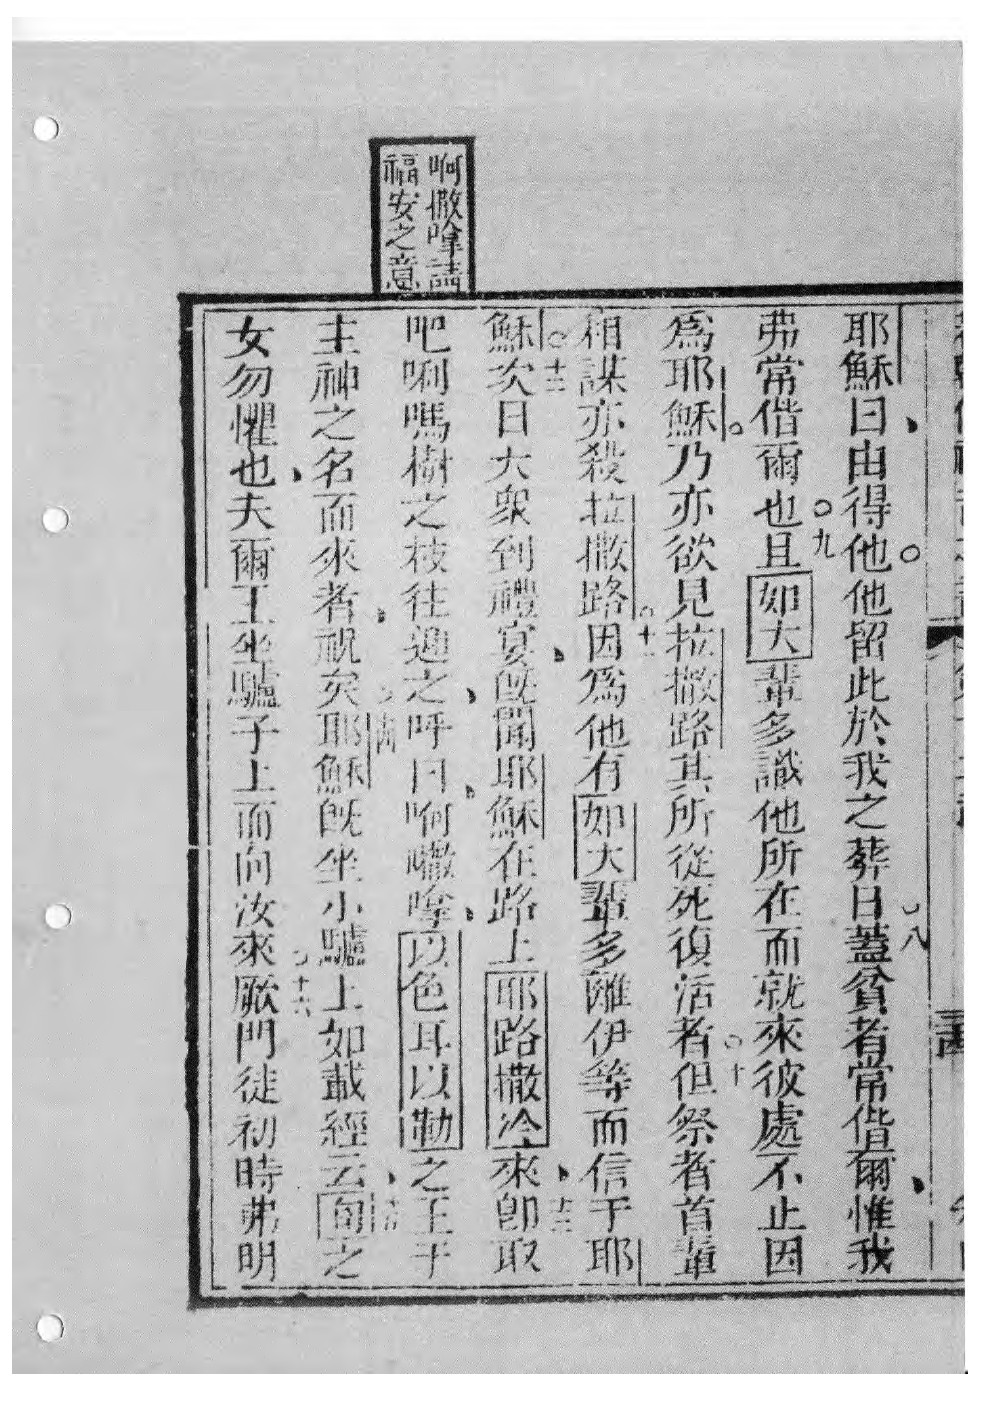 啊撒㖮請
福安之意
耶穌曰由得他他留此於我之葬日蓋貧者常偕爾惟我
八
弗常偕爾也且如大輩多識他所在而就來彼處不止因
九
為耶穌乃亦欲見拉撒路其所從死復活者但祭者首輩
十
相謀亦殺拉撒路因為他有如大輩多離伊等而信于耶
十一
穌次日大衆到禮宴旣聞耶穌在路上耶路撒冷來卽取
十二
十三
吧唎嗎樹之枝往迎之呼曰啊㘔㖮以色耳以勒之王于
主神之名而來者祝矣耶穌旣坐小驢上如載經云旬之
十四
十五
女勿懼也夫爾王坐驢子上而向汝來厥門徒初時弗明
十六